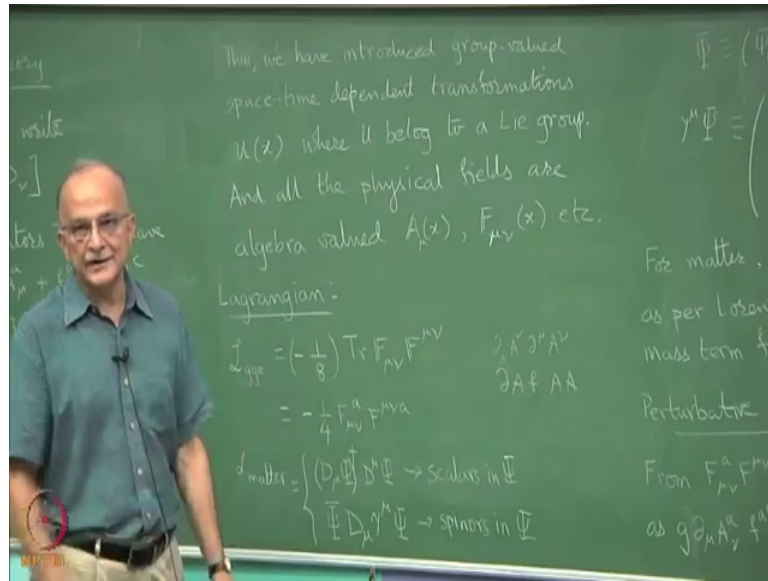 write
Thus, we have introduced group-valued
space-time dependent transformations
U(x) where U belog to a Lie group.
And all the physical fields are
algebra valued A_μ(x), F_μν(x) etc.
Lagrangian :-
L_gge = (-1/8) Tr F_μν F^μν
= -1/4 F^a_μν F^μνa
∂A f AA
L_matter = { (D_μ Ψ)† D^μ Ψ → scalars in Ψ
Ψ̄ D_μ γ^μ Ψ → spinors in Ψ
Ψ ≡ (
γ^μ Ψ ≡ (
For matter,
as per Loren
mass term f
Perturbative
From F^a_μν F^μν
as g ∂_μ A^a_ν f^a
NPTEL